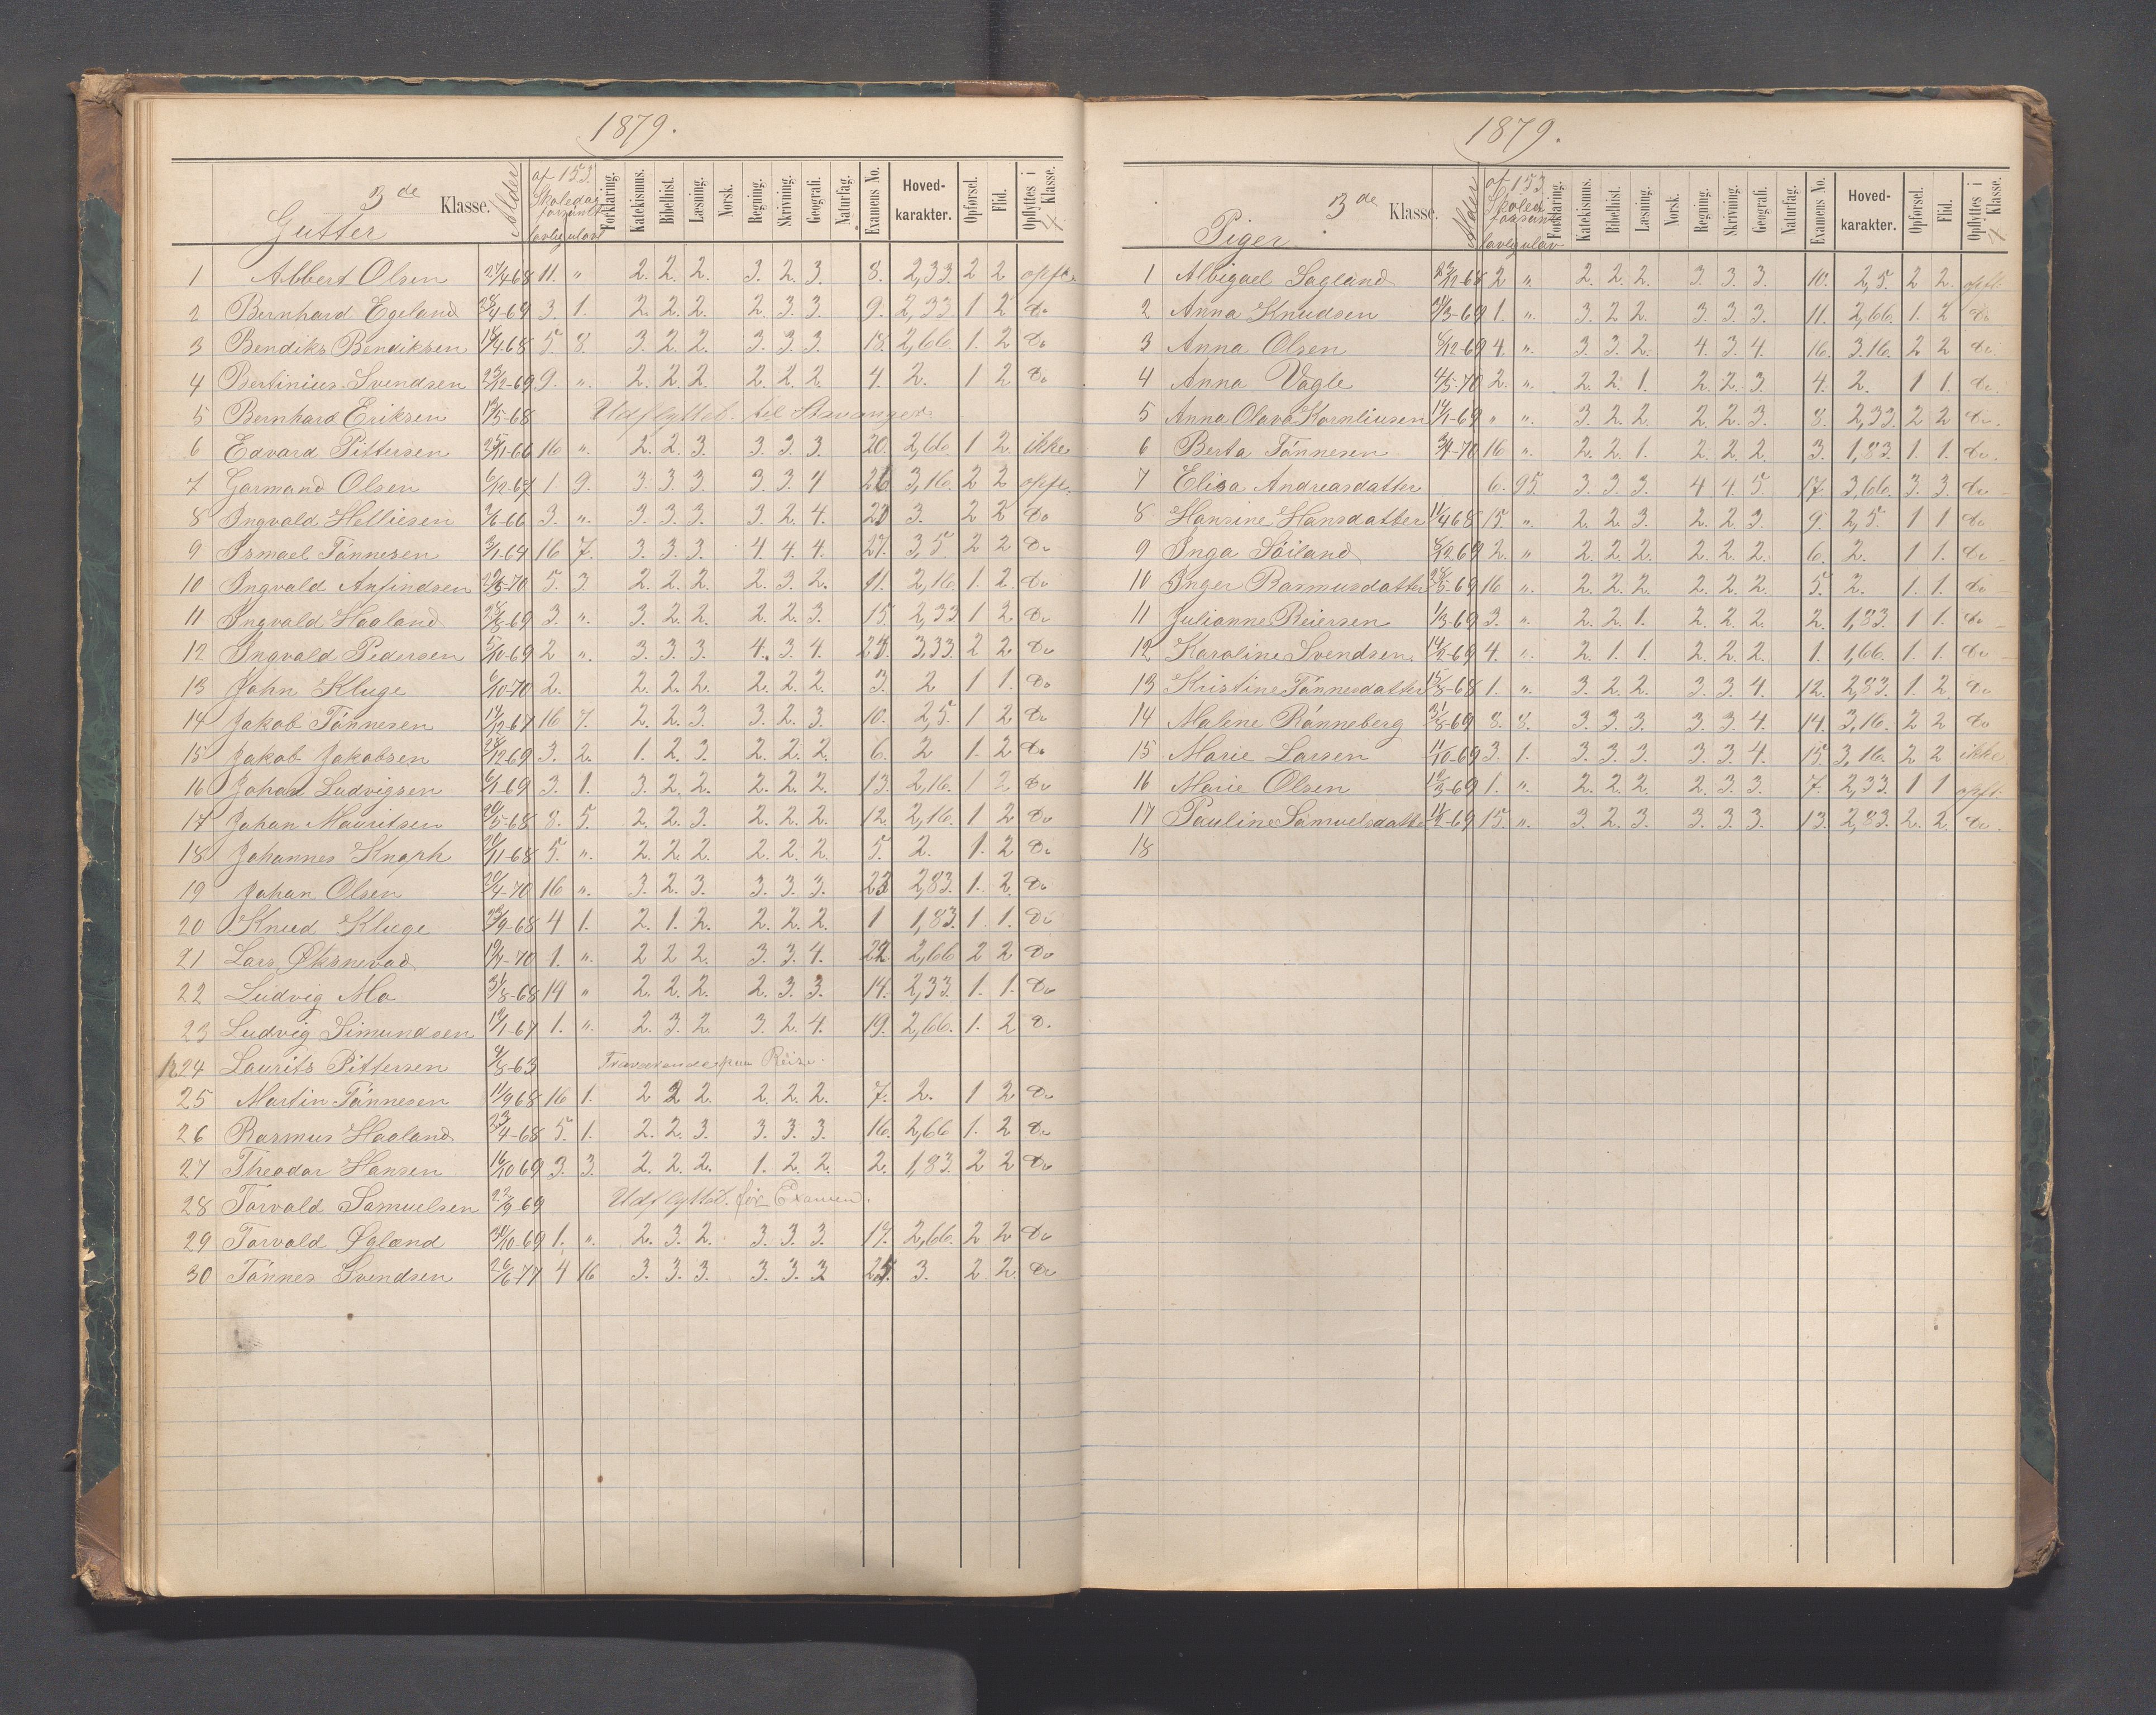 1879.
3de Klasse.
Gutter
Alder
af 153 Skoledage forsømt
lovlig ulovl
Forklaring. Katekismus. Bibelhist. Læsning. Norsk. Regning. Skrivning. Geografi. Naturfag. Examens No. Hoved-karakter. Opførsel. Flid. Opflyttes i 4 Klasse.
1 Abbert Olsen 27/4-68 11. „ 2. 2. 2. 3. 2. 3. 8. 2,33 2 2 opfl.
2 Bernhard Egeland 28/4-69 3. 1. 2. 2. 2. 2. 3. 3. 9. 2,33 1 2 Do
3 Bendiks Bendiksen 18/4-68 5. 8. 3. 2. 2. 3. 3. 3. 18. 2,66. 1. 2 Do
4 Bertinius Svendsen 23/12-69 9. „ 2. 2. 2. 2. 2. 2. 4. 2. 1 2 Do
5 Bernhard Eriksen 19/5-68 Udflyttet til Stavanger.
6 Edvard Pittersen 25/11-66 16 „ 2. 2. 3. 3. 3. 3. 20. 2,66 1 2. ikke
7 Garmand Olsen 6/12-67 1. 9. 3. 3. 3. 3. 3. 4 26 3,16. 2 2 opfl.
8 Ingvald Helliesen 9/6-66 3. „ 3. 3. 3. 3. 2. 4. 3. 2 2 Do
9 Ismael Tønnesen 3/1-64 16 7. 3. 3. 3. 4. 4. 4. 27. 3,5. 2 2 Do
10 Ingvald Anfindsen 29/5-70 5. 3. 2. 2. 2. 2. 3. 2. 11. 2,16. 1. 2 Do
11 Ingvald Haaland 28/8-69 3. „ 3. 2. 2. 2. 2. 3 15. 2,33 1 2 Do
12 Ingvald Pedersen 5/10-69 2 „ 3. 3. 3. 4. 3. 4. 3,33 2 2 Do
13 John Kluge 6/10-70 2. 2. 2. 2. 2. 2. 2. 3. 2 1 1. Do
14 Jakob Tønnesen 14/12-67 16 7. 2. 2. 3 3. 2. 3. 10. 2,5. 1 2 Do
15 Jakob Jakobsen 28/12-69 3. 2. 1. 2. 3. 2. 2. 2. 6. 2 1. 2 Do
16 Johan Ludvigsen 6/1-69 3. 1. 3. 2. 2. 2. 2. 2. 13. 2,16. 1 2 Do
17 Johan Mauritsen 20/5-68 8. 5. 2. 2. 3 2. 2. 2. 12. 2,16. 1 2 Do
18 Johannes Knaph 20/11-68 5. „ 2. 2. 2. 2. 2. 2 5. 2. 1. 2 Do
19 Johan Olsen 20/4-70 16 „ 3. 2. 3. 3. 3. 3. 23 2,83. 1. 2. Do
20 Knud Kluge 29/9-68 4 1. 2. 1. 2. 2. 2. 2. 1 1,83. 1. 1. Do
21 Lars Øksnevad 19/4-70 1. „ 2 2 2. 3. 3. 4. 22. 2,66 2 2 Do
22 Ludvig Mo 31/8-68 14 „ 2. 2. 2. 2. 3. 3. 14. 2,33. 1. 1. Do
23 Ludvig Simundsen 19/1-67 1. „ 2. 3. 2. 3. 2. 4. 19. 2,66. 1. 2 D.
24 Laurits Pittersen 9/8-63 Fraværende paa Reise.
25 Martin Tønnesen 11/9 68 16 1. 2 2 2. 2. 2. 2. 7. 2. 1 2 Do
26 Rasmus Haaland 23/4-68 5. 1. 2. 2. 3. 3. 3. 3. 16. 2,66 1. 2 Do
27 Theodor Hansen 16/10 69 3. 3. 2. 2. 2. 1. 2. 2. 2. 1,83. 2 2 Do
28 Torvald Samuelsen 22/9-69 Udflyttet før Examen.
29 Torvald Øgland 30/10-69 1. „ 2. 3. 2. 3. 3. 3. 17. 2,66. 2 2 Do
30 Tønnes Svendsen 26/6-77 4 16 3. 3. 3. 3. 3. 3 25 3. 2 2. Do
1879.
3de Klasse.
Piger
Alder
af 153 Skoled forsømt
lovlig ulov
Forklaring. Katekismus. Bibelhist. Læsning. Norsk. Regning. Skrivning. Geografi. Naturfag. Examens No. Hoved-karakter. Opførsel. Flid. Opflyttes i 4 Klasse.
1 Albigael Sagland 23/12-68 2 „ 2. 2. 2. 3. 3. 3. 10. 2,5. 2 2. opfl.
2 Anna Knudsen 21/3-69 1. „ 3. 2 2. 3. 3. 3. 11. 2,66. 1. 2 Do
3 Anna Olsen 8/12-69 4. „ 3. 3. 2. 4. 3. 4. 16. 3.16. 2 2 Do
4 Anna Vagle 4/5-70 2. „ 2. 2. 1. 2. 2. 3. 4. 2. 1 1. Do
5 Anna Olava Kornliusen 14/1-69 „ „ 3. 2. 2. 2. 2. 3. 8. 2,33. 2 2 Do.
6 Berta Tønnesen 3/4-70 16 „ 2. 2. 1. 2. 2. 2. 3. 1,83. 1. 1. Do.
7 Elisa Andreasdatter 6. 95. 3. 3. 3. 4 4. 5. 17. 3,66. 3. 3. Do
8 Hansine Hansdatter 11/4 68 15. „ 2. 2. 3. 2. 2. 3. 9. 2,5. 1 1 Do
9 Inga Søiland 8/12 69 2. „ 2. 2. 2. 2. 2. 2. 6. 2. 1 1. Do
10 Inger Rasmusdatter 28/5-69 16 „ 2. 2. 2. 2. 2. 2. 5. 2. 1. 1. Do
11 Julianne Reiersen 1/3-69 3. „ 2. 2. 1. 2. 2. 2. 2. 1,83. 1 1. Do
12 Karoline Svendsen 14/2-69 4. „ 2. 1. 1. 2. 2. 2. 1. 1,66. 1. 1. Do
13 Kristine Tønnesdatter 15/8-68 1. „ 3. 2. 2. 3. 3. 4. 12. 2,83. 1. 2. Do
14 Malene Rønneberg 31/8-69 8. 8. 3. 3. 3. 3. 3. 4. 14. 3,16. 2 2 Do
15 Marie Larsen 11/10-69 3. 1. 3. 3. 3. 3. 3. 4. 15. 3,16. 2 2 ikke
16 Marie Olsen 19/3-69 1. „ 2. 2. 2. 2. 3. 3. 7. 2,33. 1 1 opfl.
17 Pauline Samuelsdatte 15. „ 3. 2. 3. 3. 3. 3. 13. 2,83. 2. 2 Do.
18